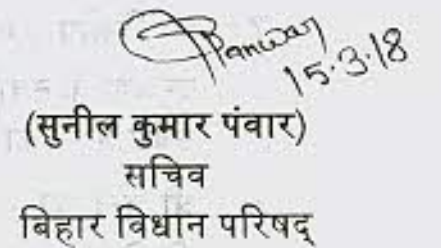 Panwar
15.3.18
(सुनील कुमार पंवार)
सचिव
बिहार विधान परिषद्